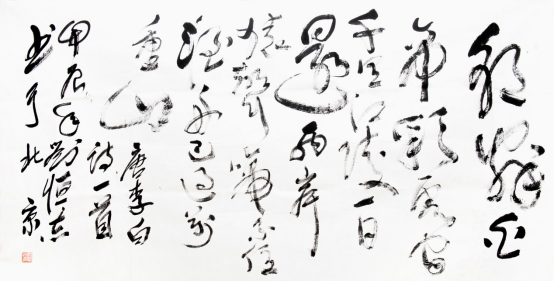 朝辞白
帝彩云间
千里江陵一日
還两岸
猿聲啼不住
轻舟已过万
重山
唐李白
诗一首
甲辰年劉恒
书于北京